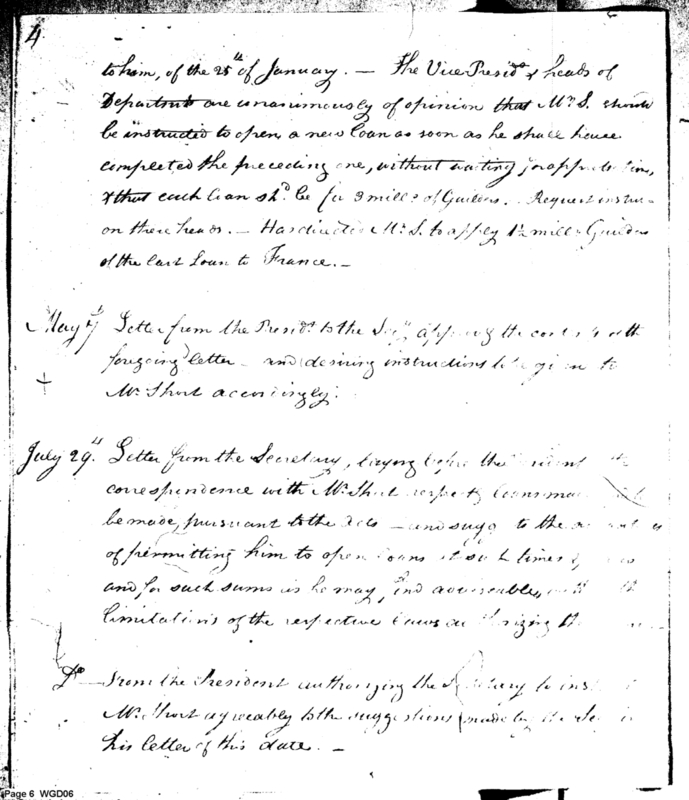 4
to him, of the 25th of January. — The Vice Presidt & heads of
Departmts are unanimously of opinion that Mr S. should
be instructed to open a new Loan as soon as he shall have
completed the preceding one, without waiting for
& that each Loan shd be for 3 mills of Guilders. Request
on these heads. — Has directed Mr S. to apply 1½ mills Guilders
of the last Loan to France. —
May 7th Letter from the Presidt to the Secy the
foregoing letter — and desiring instructions to
+ Mr Short accordingly.
July 29th. Letter from the Secretary, laying before the
correspondence with Mr Short Loans
be made, pursuant to the Acts — and to the
of permitting him to open Loans at such times
and for such sums as he may find adviseable,
limitations of the respective Laws authorizing the
Do — From the President authorizing the Secretary to
Mr Short agreeably to the suggestions made by the
his letter of this date. —
Page 6 WGD06